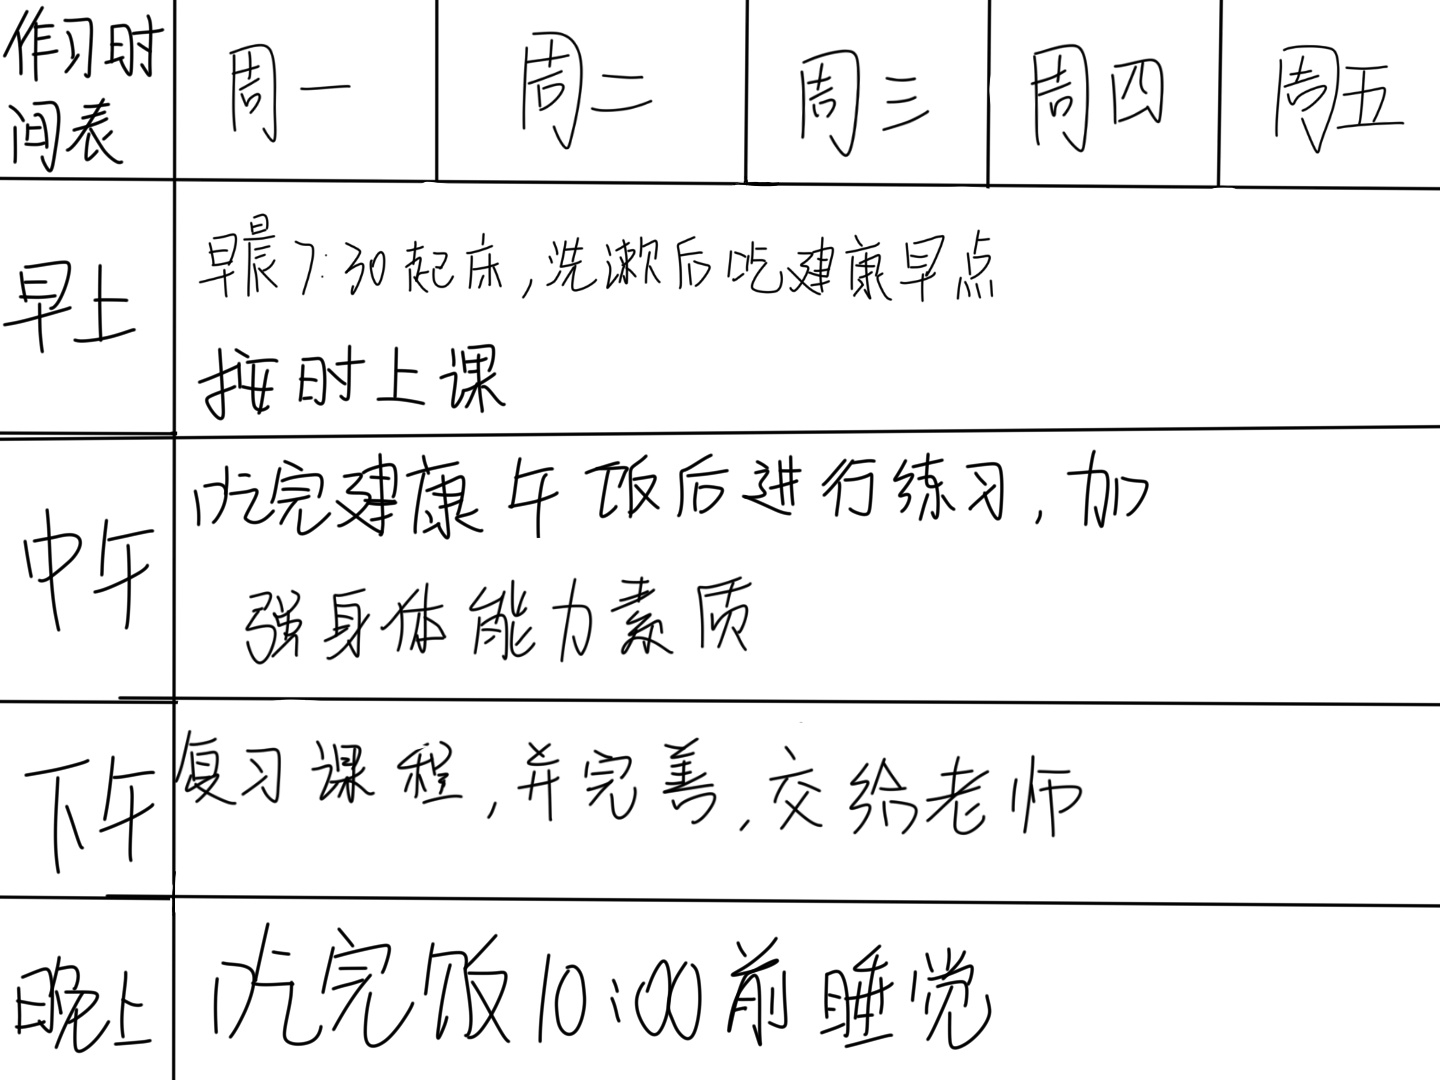 作习时
间表
周一 周二 周三 周四 周五
早上
早晨7:30起床,洗漱后吃建康早点
按时上课
中午
吃完建康午饭后进行练习,加
强身体能力素质
下午
复习课程,并完善,交给老师
晚上
吃完饭10:00前睡觉